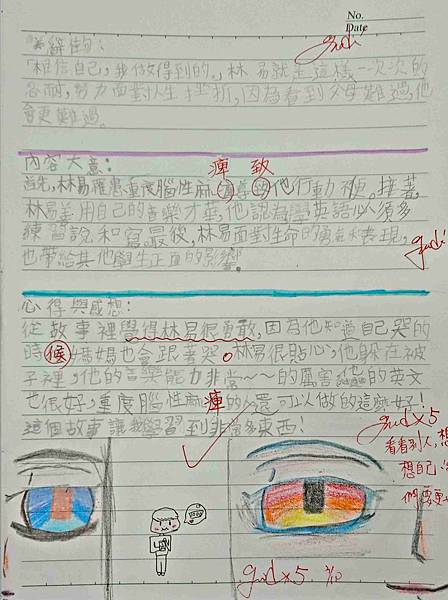 No.
Date
佳句:
「相信自己,我做得到的。」林易就是這樣一次次的
忍耐,努力面對人生挫折,因為看到父母難過,他
會更難過。
good!
內容大意:
痺 致
首先,林易罹患重度腦性麻導他行動不便。接著
林易善用自己的音樂才華,他認為學英語必須多
練習說和寫最後,林易面對生命的勇氣和表現,
也帶給其他學生正面的影響。
good!
心得與感想:
從故事裡學得林易很勇敢,因為他知道自己哭的
時候媽媽也會跟著哭。林易很貼心,他躲在被
子裡,他的音樂能力非常~~的厲害他的英文
也很好,重度腦性麻痺的人還可以做的這麼好!
這個故事讓我學習到非常多東西!
good x5
看看別人,想
想自己,
們要更
good x5